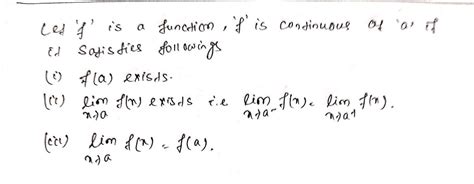 Let 'f' is a function, 'f' is continuous at 'a' if
it satisfies followings
(i) f(a) exists.
(ii) lim f(x) exists i.e lim f(x) = lim f(x).
x→a x→a⁻ x→a⁺
(iii) lim f(x) = f(a).
x→a